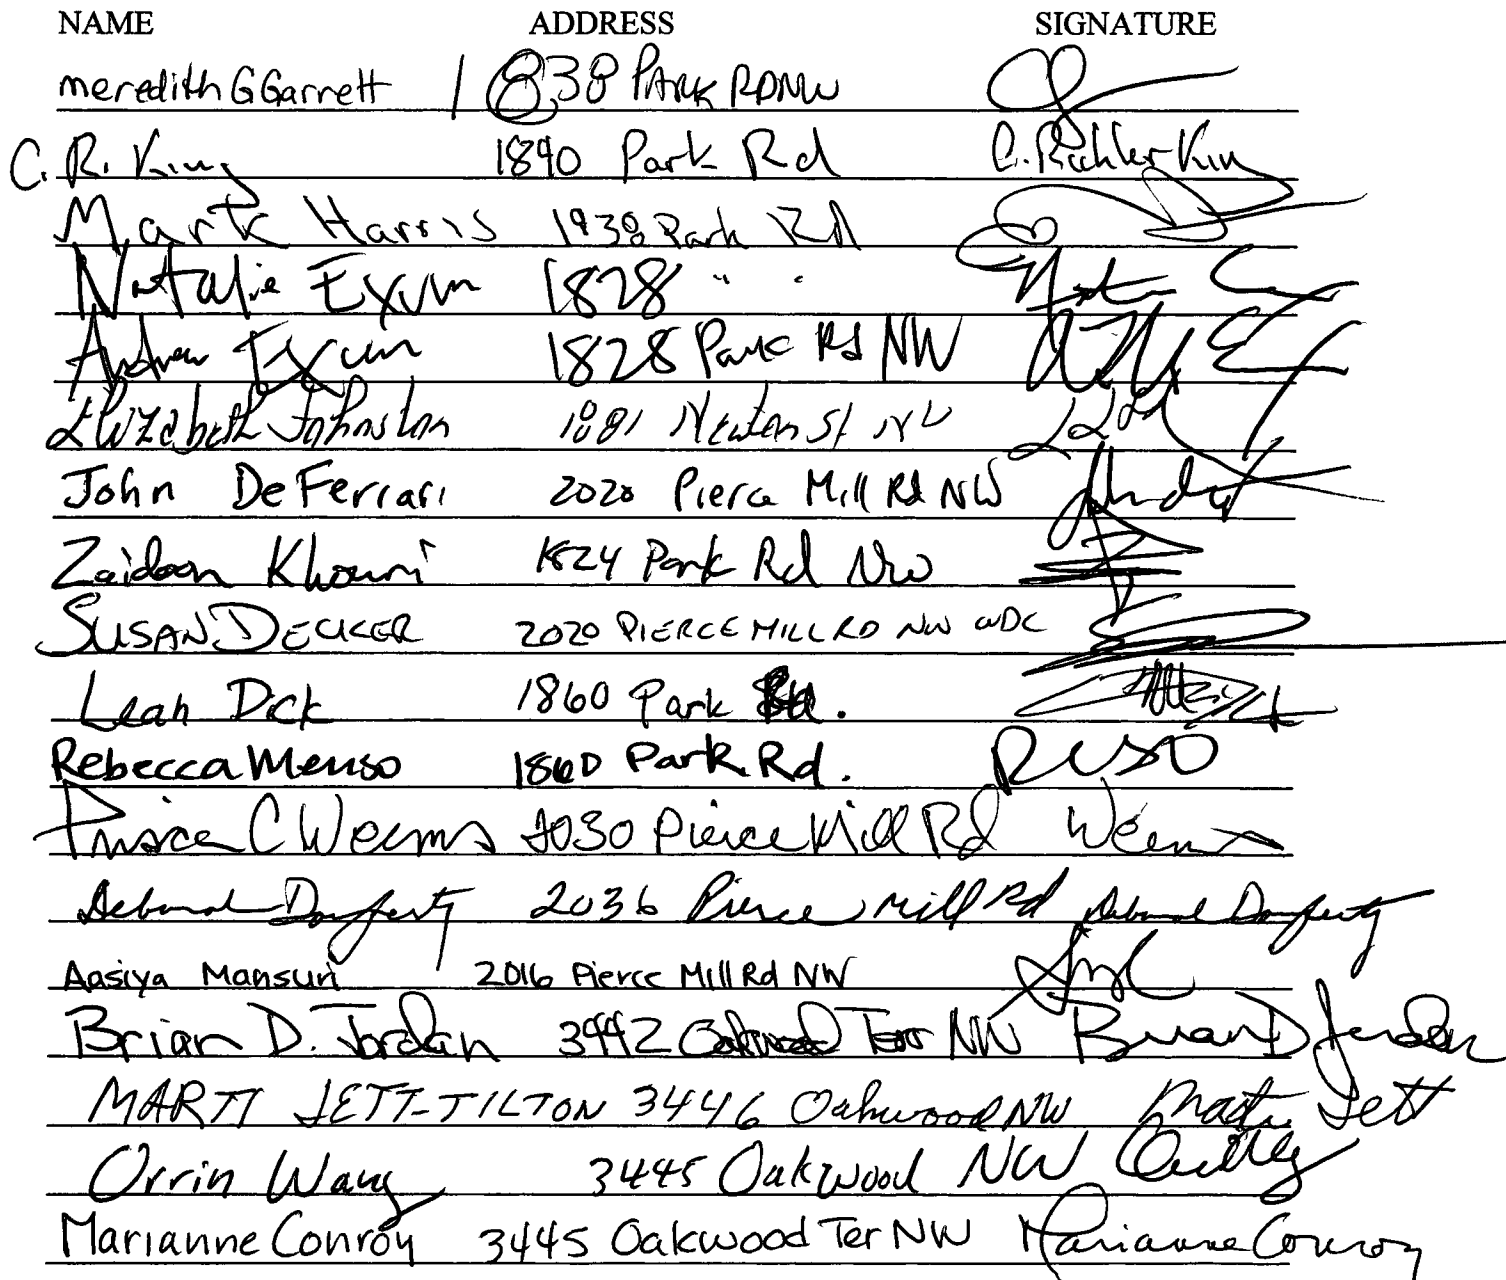 NAME ADDRESS SIGNATURE
meredith G Garrett 1838 PARK RD NW
C. R. King 1890 Park Rd C. Richter King
Mark Harris 1938 Park Rd
Natalie Exum 1828 " "
Andrew Exum 1828 Park Rd NW
Elizabeth Johnston 1881 Newton St NW
John DeFerrari 2020 Pierce Mill Rd NW
Zaidoon Khouri 1824 Park Rd NW
SUSAN DECKER 2020 PIERCE MILL RD NW WDC
Leah Dick 1860 Park Rd.
Rebecca Menso 1860 Park Rd.
C Weems 2030 Pierce Mill Rd Weems
Deborah Dougherty 2036 Pierce Mill Rd Deborah Dougherty
Aasiya Mansuri 2016 Pierce Mill Rd NW
Brian D. Jordan 3442 Oakwood Terr NW Brian D Jordan
MARTI JETT-TILTON 3446 Oakwood NW Marti Jett
Orrin Wang 3445 Oakwood NW
Marianne Conroy 3445 Oakwood Ter NW Marianne Conroy